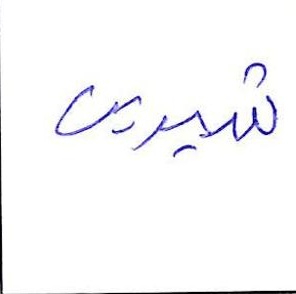 شیرین